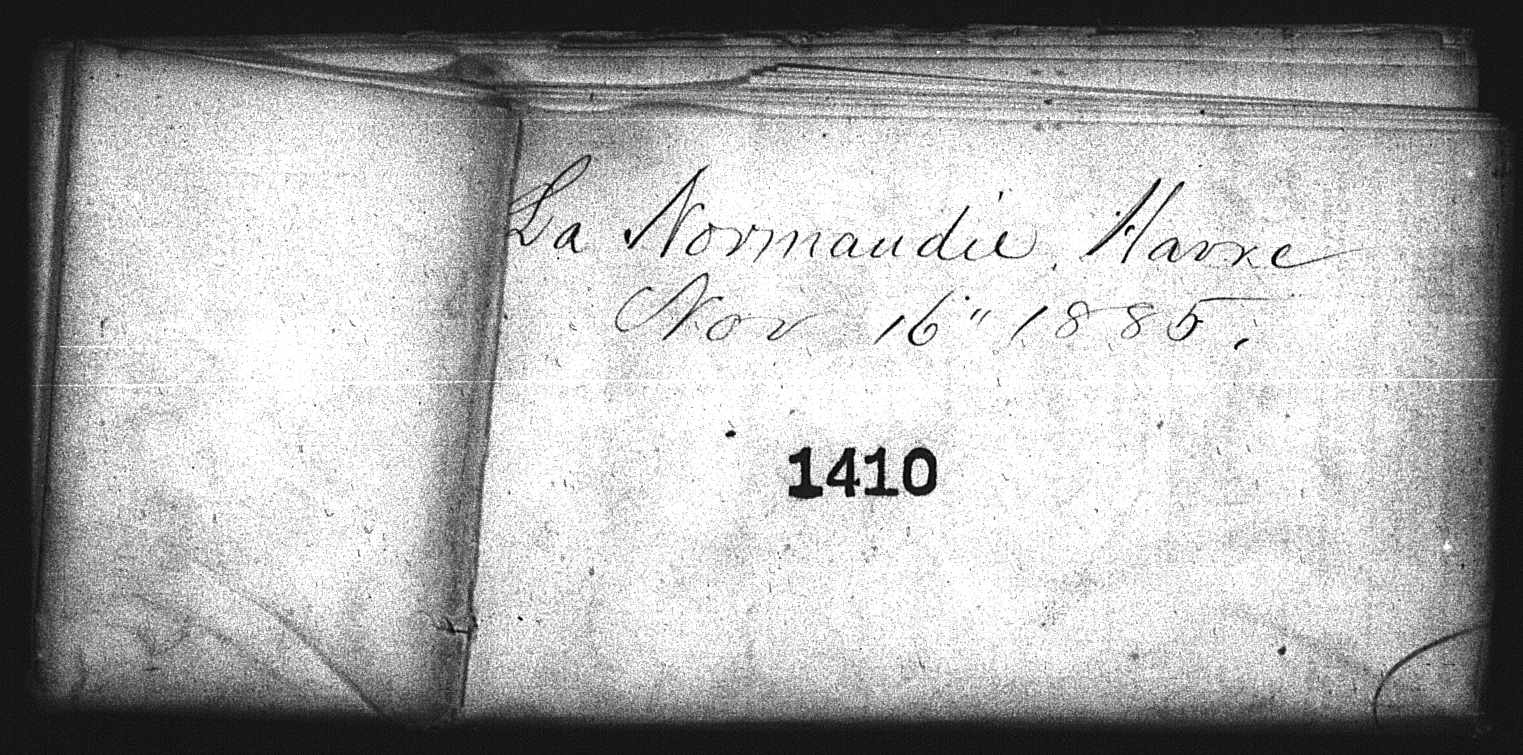 La Normandie, Havre
Nov 16" 1885.
1410